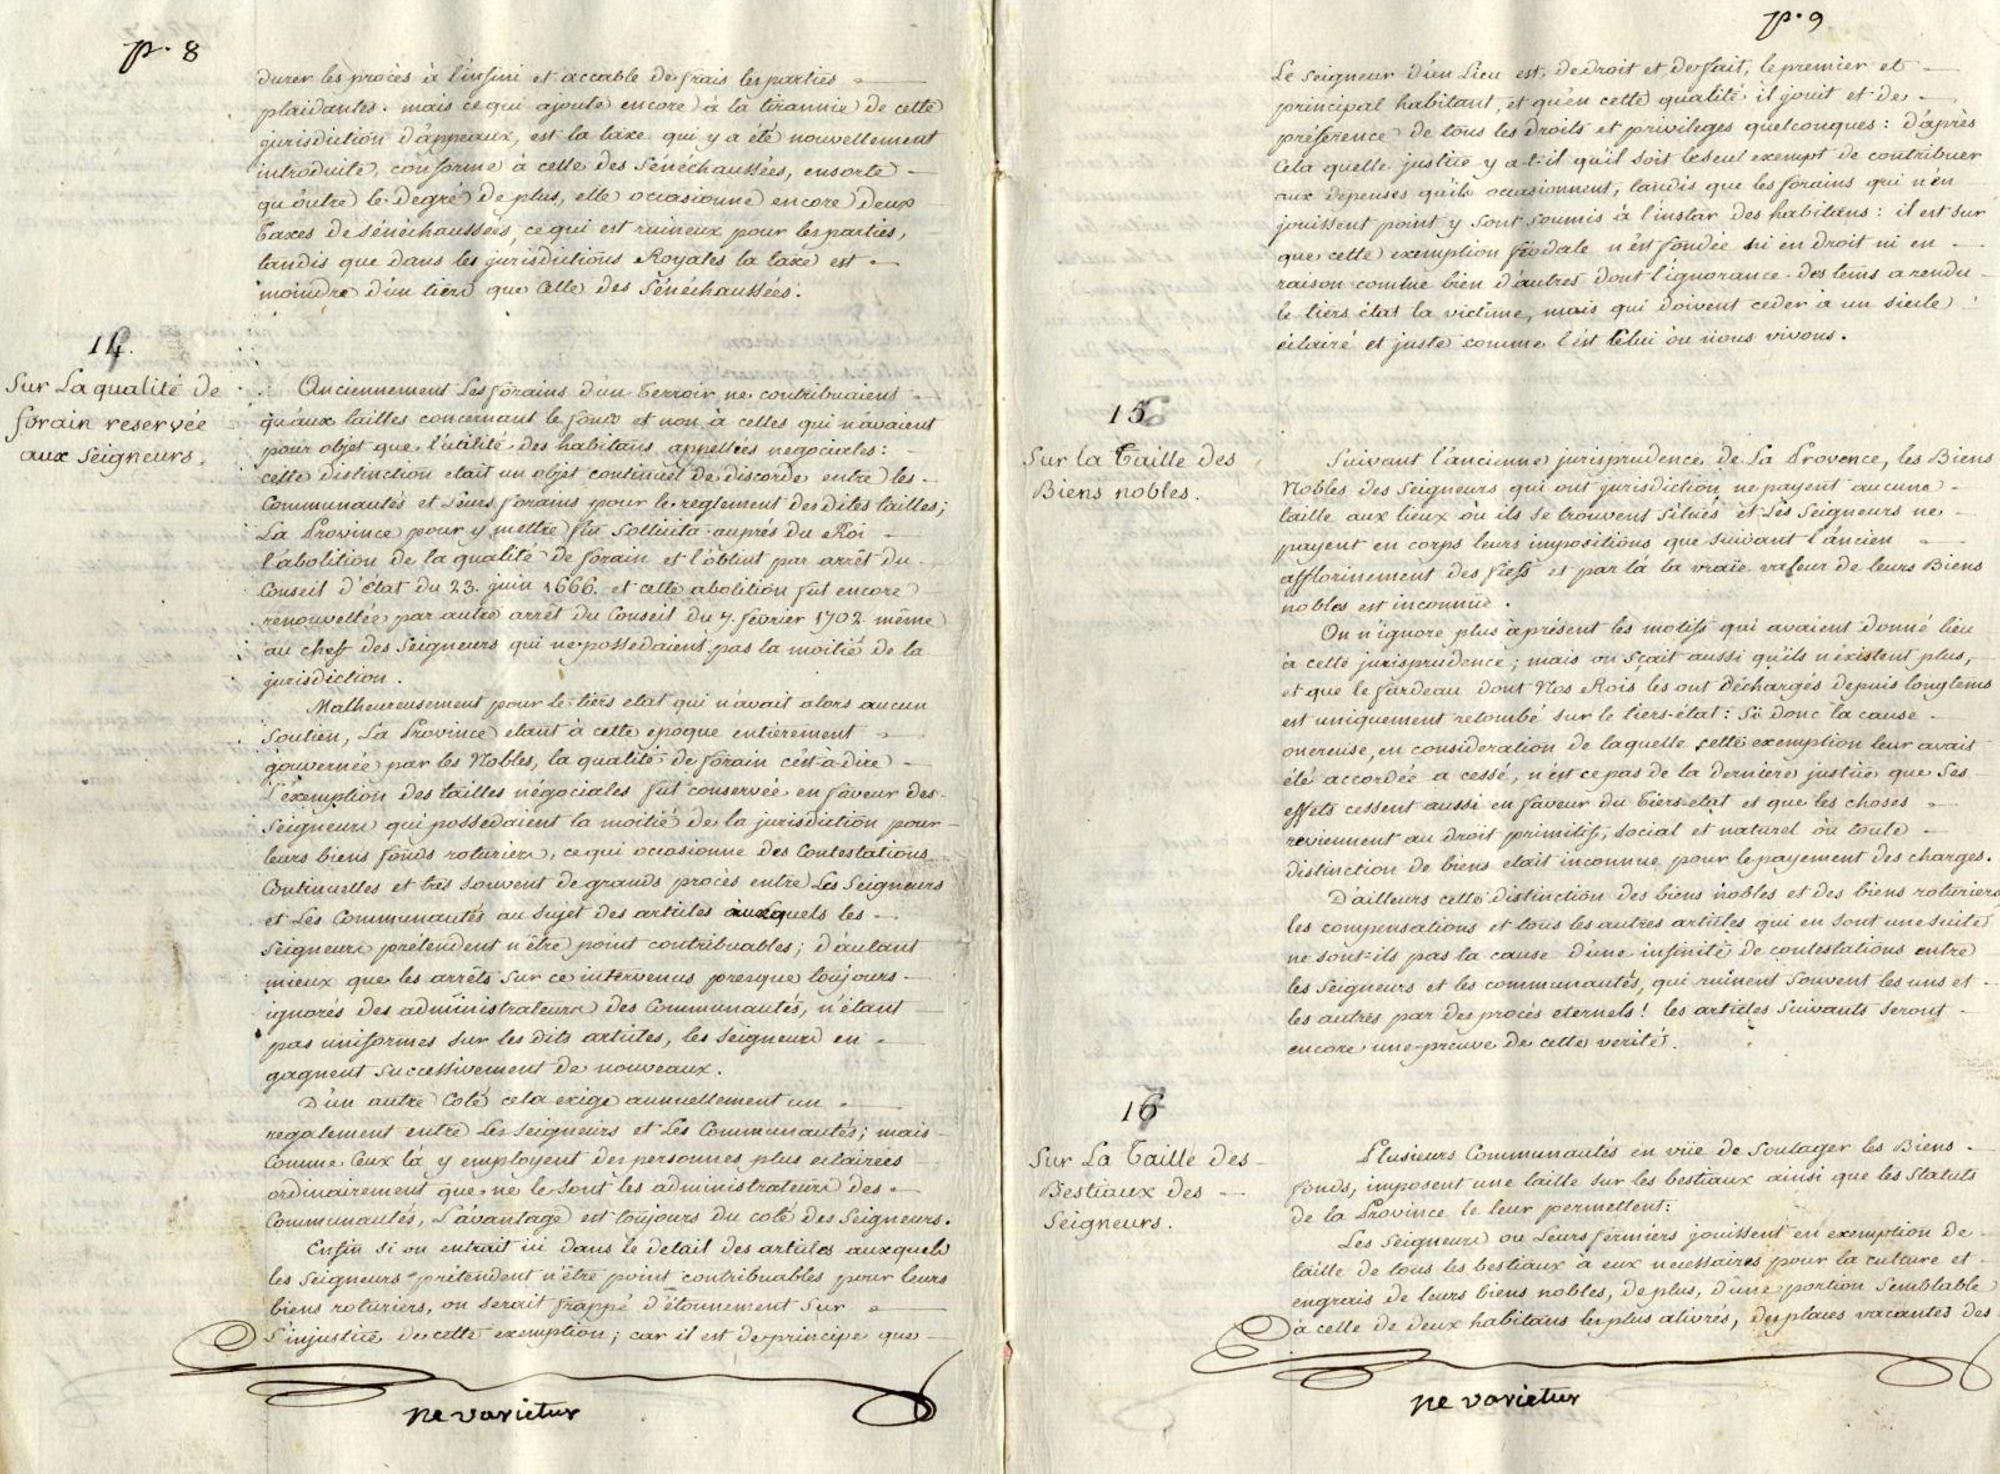 p. 8
durer les procès à l'infini et accable de frais les parties
plaidantes. mais ce qui ajoute encore à la tirannie de cette
jurisdiction d'appeaux, est la taxe qui y a été nouvellement
introduite, conforme à celle des Sénéchaussées, ensorte
qu'outre le degré de plus, elle occasionne encore deux
Taxes de Sénéchaussées, ce qui est ruineux pour les parties,
tandis que dans les jurisdictions Royales la taxe est
moindre d'un tiers que Celle des Sénéchaussées.
14.
Sur La qualité de
forain reservée
aux Seigneurs.
Anciennement Les forains d'un Terroir ne contribuaient
qu'aux tailles concernant le fond et non à celles qui n'avaient
pour objet que l'utilité des habitans appellées negociales:
cette distinction etait un objet continuel de discorde entre les
Communautés et Leurs forains pour le reglement des dites tailles;
La Province pour y mettre fin sollicita auprés du Roi
l'abolition de la qualité de forain et l'obtint par arrêt du
Conseil d'Etat du 23. juin 1666. et cette abolition fut encore
renouvellée par autre arrêt du Conseil du 7. février 1702. même
au chef des Seigneurs qui ne possedaient pas la moitié de la
jurisdiction.
Malheureusement pour le tiers etat qui n'avait alors aucun
soutien, La Province etant à cette epoque entièrement
gouvernée par les Nobles, la qualité de forain c'est-à-dire
L'exemption des tailles négociales fut conservée en faveur des
Seigneurs qui possedaient la moitié de la jurisdiction pour
leurs biens fonds roturiers, ce qui occasionne des Contestations
Continuelles et très souvent de grands procès entre Les Seigneurs
et Les Communautés au sujet des articles auxquels les
Seigneurs prétendent n'être point contribuables; d'autant
mieux que les arrêts sur ce intervenus presque toujours
ignorés des administrateurs des Communautés, n'étant
pas uniformes sur les dits articles, les Seigneurs en
gagnent successivement de nouveaux.
D'un autre Coté cela exige annuellement un
regalement entre Les Seigneurs et Les Communautés; mais
Comme Ceux la y employent des personnes plus eclairées
ordinairement que ne le sont les administrateurs des
Communautés, L'avantage est toujours du coté des Seigneurs.
Enfin si on entrait ici dans le detail des articles auxquels
les Seigneurs prétendent n'être point contribuables pour leurs
biens roturiers, on serait frappé d'étonnement sur
L'injustice de cette exemption; car il est de principe que
ne varietur
p. 9
Le Seigneur d'un Lieu est, de droit et de fait, le premier et
principal habitant, et qu'en cette qualité il jouit et de
préférence de tous les droits et privileges quelconques: d'après
Cela quelle justice y a-t-il qu'il soit le seul exempt de contribuer
aux depenses qu'ils occasionnent, tandis que les forains qui n'en
jouissent point y sont soumis à l'instar des habitans: il est sur
que cette exemption féodale n'est fondée ni en droit ni en
raison comme bien d'autres dont l'ignorance des tems a rendu
le tiers état la victime, mais qui doivent ceder à un siecle
éclairé et juste comme l'est Celui où nous vivons.
15
Sur la Taille des
Biens nobles.
Suivant l'ancienne jurisprudence de La Provence, les Biens
Nobles des Seigneurs qui ont jurisdiction ne payent aucune
taille aux lieux où ils se trouvent Situés et Les Seigneurs ne
payent en corps leurs impositions que suivant l'ancien
afflorinement des fiefs et par là la vraïe valeur de leurs Biens
nobles est inconnüe.
On n'ignore plus aprésent les motifs qui avaient donné lieu
à cette jurisprudence; mais on sçait aussi qu'ils n'existent plus,
et que le fardeau dont Nos Rois les ont déchargés depuis longtems
est uniquement retombé sur le tiers-état: Si donc la cause
onereuse, en consideration de laquelle cette exemption leur avait
été accordée a cessé, n'est ce pas de la derniere justice que ses
effets cessent aussi en faveur du Tiers-etat et que les choses
reviennent au droit primitif, social et naturel où toute
distinction de biens etait inconnue pour le payement des charges.
D'ailleurs cette distinction des biens nobles et des biens roturiers
les compensations et tous les autres articles qui en sont une suite
ne sont-ils pas la cause d'une infinité de contestations entre
les Seigneurs et les communautés, qui ruinent souvent les uns et
les autres par des procés eternels! les articles suivants seront
encore une preuve de cette verité.
16
Sur La Taille des
Bestiaux des
Seigneurs.
Plusieurs Communautés en vüe de soulager les Biens
fonds, imposent une taille sur les bestiaux ainsi que les Statuts
de la Province le leur permettent:
Les Seigneurs ou Leurs fermiers jouissent en exemption de
taille de tous les bestiaux à eux necessaires pour la culture et
engrais de leurs biens nobles, de plus, d'une portion semblable
à celle de deux habitans les plus alivrés, des places vacantes des
ne varietur